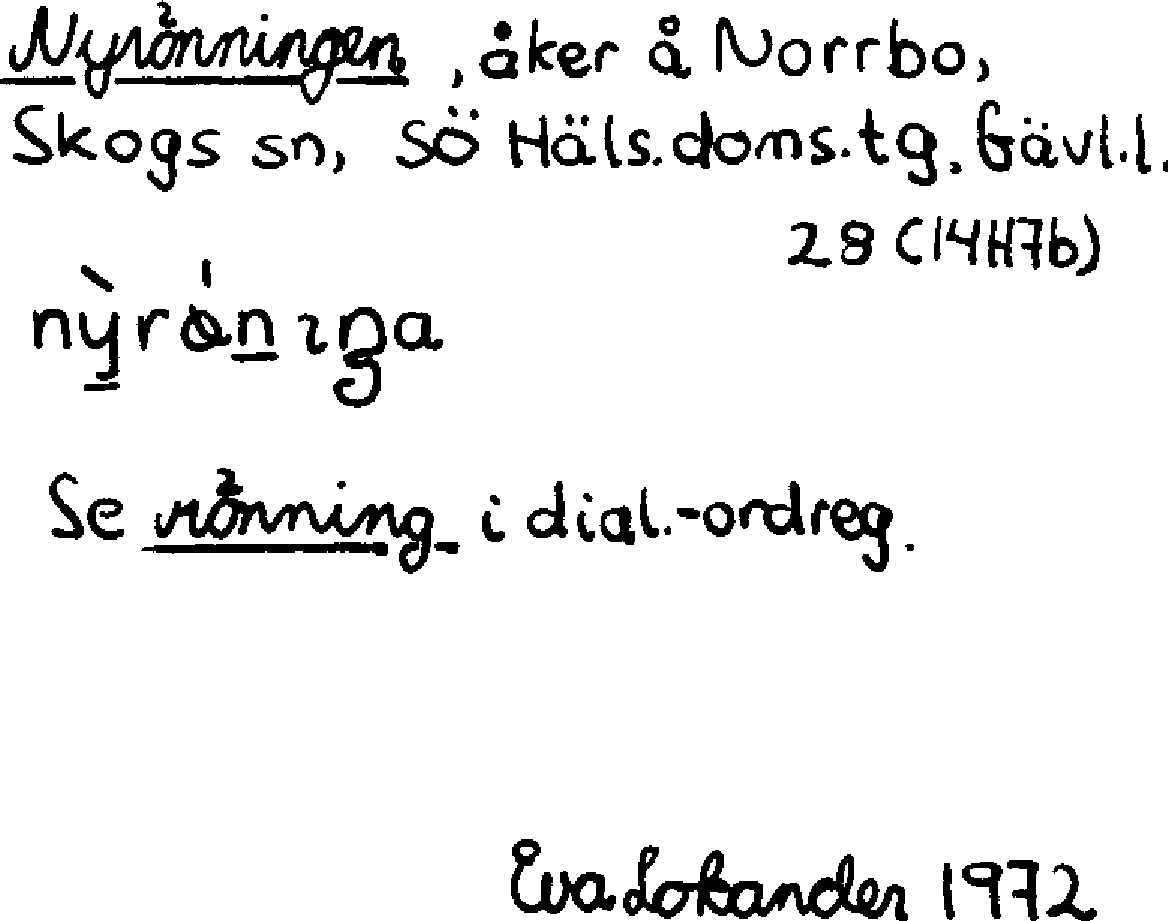 Nyrönningen, åker å Norrbo,
Skogs sn, Sö Häls.doms.tg. Gävl.l.
28 (14H7b)
Se rönning i dial.-ordreg.
Eva Lokander 1972